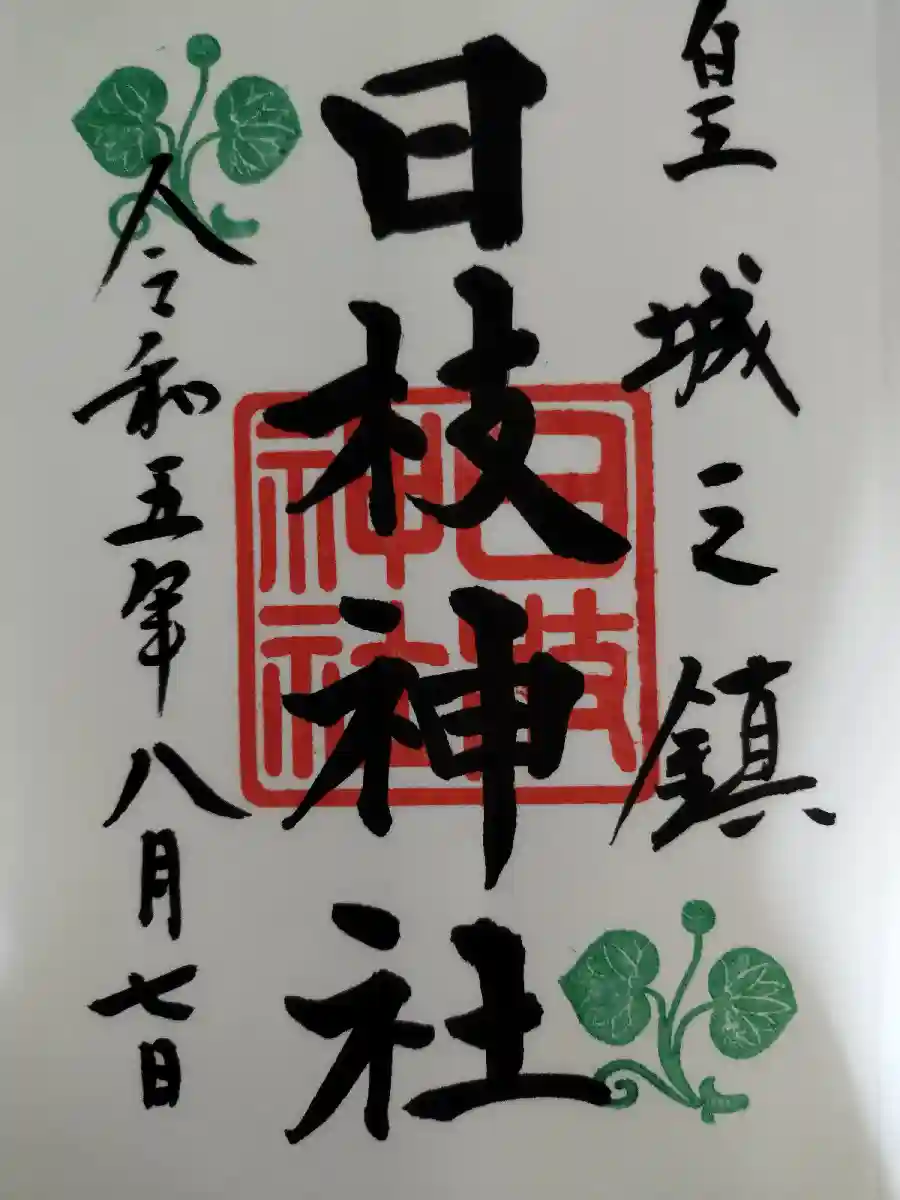 皇城之鎮
日枝神社
日枝神社
令和五年八月七日